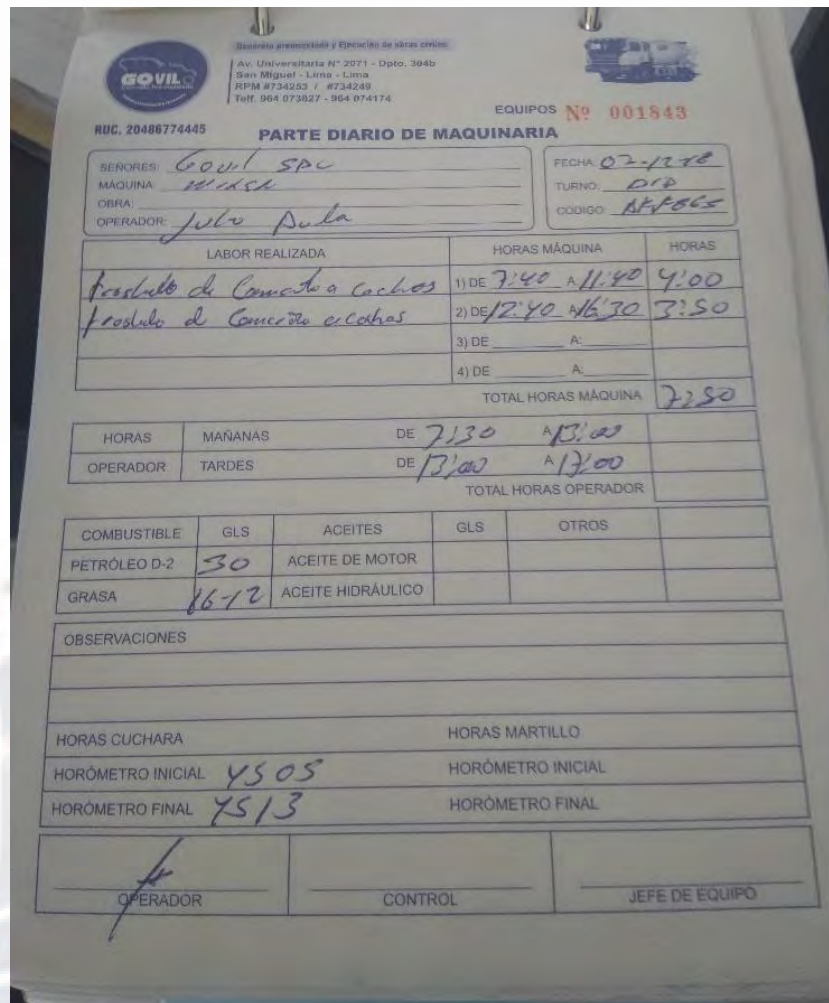 Concreto premezclado y Ejecución de obras civiles
GOVIL
Av. Universitaria N° 2071 - Dpto. 304b
San Miguel - Lima - Lima
RPM #734253 / #734249
Telf. 964 073827 - 964 074174
EQUIPOS Nº 001843
RUC. 20486774445
PARTE DIARIO DE MAQUINARIA
SEÑORES: Govil SAC
MÁQUINA:
OBRA:
OPERADOR: Julio
FECHA: 07-12-18
TURNO: DIA
CODIGO:
LABOR REALIZADA HORAS MÁQUINA HORAS
traslado de Concreto a 1) DE 7:40 A 11:40 4:00
traslado d Concreto a 2) DE 12:40 A 16:30 3:50
3) DE A:
4) DE A:
TOTAL HORAS MÁQUINA 7:50
HORAS MAÑANAS DE 7:30 A 13:00
OPERADOR TARDES DE 13:00 A 17:00
TOTAL HORAS OPERADOR
COMBUSTIBLE GLS ACEITES GLS OTROS
PETRÓLEO D-2 30 ACEITE DE MOTOR
GRASA 16-12 ACEITE HIDRÁULICO
OBSERVACIONES
HORAS CUCHARA HORAS MARTILLO
HORÓMETRO INICIAL 4505 HORÓMETRO INICIAL
HORÓMETRO FINAL 4513 HORÓMETRO FINAL
OPERADOR CONTROL JEFE DE EQUIPO